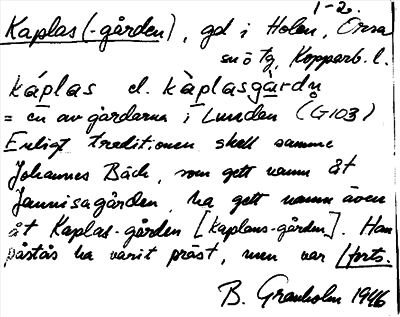 1-2.
Kaplas (-gården), gd i Holen, Orsa
snötg, Kopparb. l.
káplas el. kàplasgà̱rdn̥
= en av gårdarna i Lunden (G103)
Enligt traditionen skall samme
Johannes Bäck, som gett namn åt
Jannisagården, ha gett namn även
åt Kaplas-gården [kaplans-gården]. Han
påstås ha varit präst, men var /forts.
B. Granholm 1946